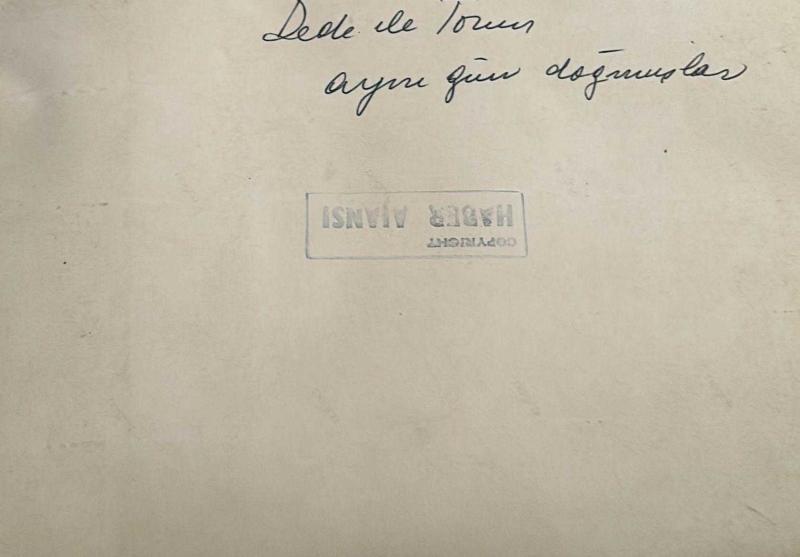 Dede ile Torun
aynı gün doğmuşlar
COPYRIGHT
HABER AJANSI